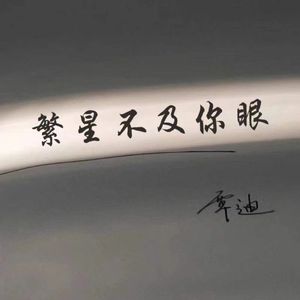 繁星不及你眼
覃迪